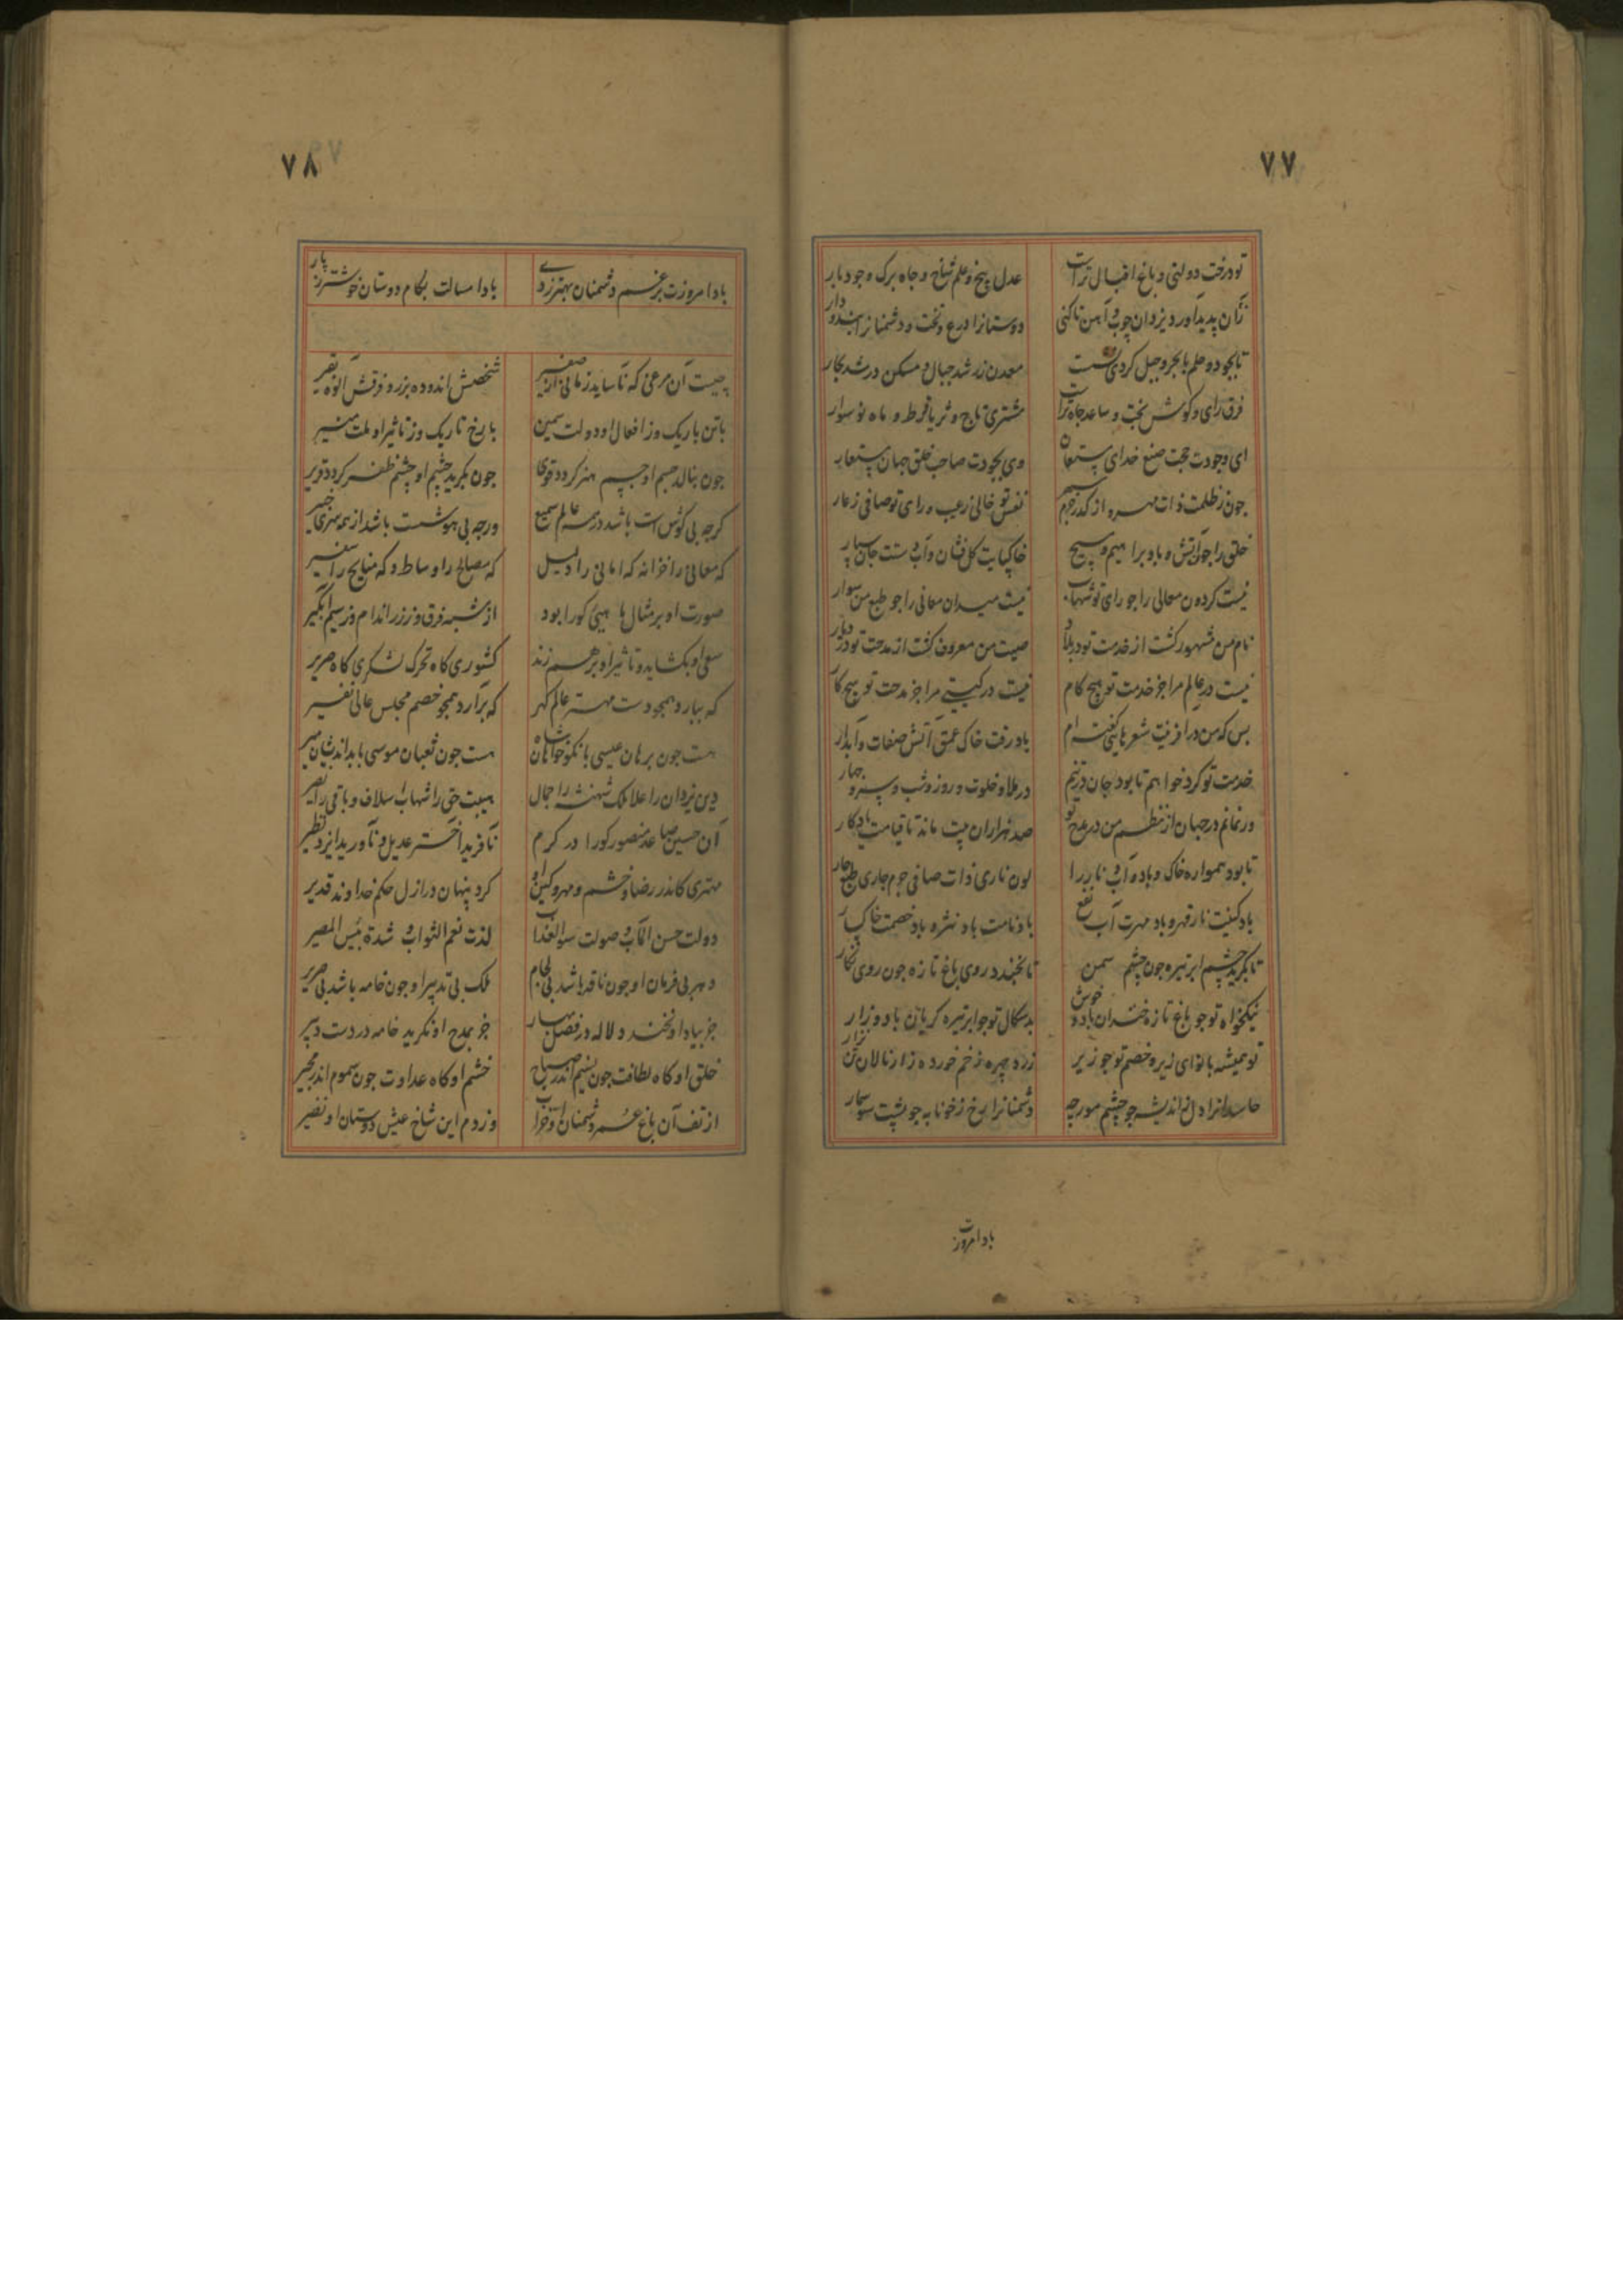 ۷۷
تو درخت دولتی و باغ اقبال تراست
عدل بیخ و علم شاخ و جاه برک و جود بار
زان پدید آورد یزدان چوب و آهن تا کنی
دوستانرا درع و تخت و دشمنانرا بند و دار
تا بجود و حلم با بحر و جبل کردی
معدن زر شد جبال و مسکن در شد بحار
فرق رای و کوش بخت و ساعد جاه تراست
مشتری تاج و ثریا قرط و ماه نو سوار
ای وجودت حجت صنع خدای مستعان
وی بجودت صاحب خلق جهان مستعار
جون ز ظلمت ذات مهر و از کدر جرم سپهر
نفس تو خالی ز عیب و رای تو صافی ز عار
خلق را جو آتش و باد براهیم و مسیح
خاکپایت کل فشان و آب دستت جان سپار
نیست کردون معالی را جو رای تو شهاب
نیست میدان معانی را جو طبع من سوار
نام من مشهور کشت از خدمت تو در بلاد
صیت من معروف کشت از مدحت تو در دیار
نیست در عالم مرا جز خدمت تو هیچ کام
نیست در کیتی مرا جز مدحت تو هیچ کار
بس که من در آفرینت شعرهایی کفته ام
باد رفت خاک عمق آتش صفات و آبدار
خدمت تو کرد خواهم تا بود جان در تنم
در ملا و خلوت و روز و شب و سر و جهار
ور نمانم در جهان از نظم من در مدح تو
صد هزاران بیت ماند تا قیامت یادکار
تا بود همواره خاک و باد و آب و نار را
لون ناری ذات صافی جرم جاری طبع حار
باد کینت نار قهر و باد مهرت آب نفع
باد نامت باد نشره باد خصمت خاکسار
تا بکرید چشم ابر تیره جون چشم سمن
تا بخندد روی باغ تازه جون روی نکار
نیکخواه تو جو باغ تازه خندان باد و خوش
بدسکال تو جو ابر تیره کریان باد و زار
تو همیشه با نوای زیر و خصم تو جو زیر
زرد جهره زخم خورده زار نالان تن نزار
حاسدانرا دل ز اندیشه جو چشم مورچه
دشمنانرا رخ ز خونابه جو پشت سوسمار
باد امروزت
۷۸
بادا امروزت برغم دشمنان بهتر ز دی
بادا امسالت بکام دوستان خوشتر ز پار
چیست آن مرغی که ناساید زمانی از صفیر
شخصش اندوده بزر و فرقش الوده بقیر
با تن باریک وز افعال او دولت سمین
با رخ تاریک وز تاثیر او ملت منیر
جون بنالد جسم او جسم هنر کردد قوی
جون بکرید چشم او چشم ظفر کردد قریر
کرجه بی کوش است باشد در همه عالم سمیع
ورجه بی هوشست باشد از همه سری خبیر
که معانی را خزانه که امانی را دلیل
که مصالح را وساطه که مناجح را سفیر
صورت او بر مثال ماهیی کورا بود
از شبه فرق و ز زر اندام وز سیم آبکیر
سعی او بکشاید و تاثیر او بر هم زند
کشوری کاه تحرک لشکری کاه صریر
که ببارد همجو دست مهتر عالم کهر
که برآرد همجو خصم مجلس عالی نفیر
هست جون برهان عیسی با نکوخواهان شاه
هست جون ثعبان موسی با بداندیشان میر
دین یزدان را علا ملک شهنشه را جمال
بیت حق را شهاب اسلاف و باقی را نصیر
آن حسین صاعد منصور کورا در کرم
نافرید اختر عدیل و ناورید ایزد نظیر
مهتری کاندر رضا و خشم و مهر و کین او
کرد پنهان در ازل حکم خداوند قدیر
دولت حسن المآب و صولت سوء العذاب
لذت نعم الثواب و شدة بئس المصیر
دهر بی فرمان او جون ناقه باشد بی لجام
ملک بی تدبیر او جون خامه باشد بی صریر
جز بیاد او نخندد لاله در فصل بهار
جز بمدح او نکرید خامه در دست دبیر
خلق او کاه لطافت جون نسیم اندر صباح
خشم او کاه عداوت جون سموم اندر هجیر
از تف آن باغ عمر دشمنان او خراب
وز دم این شاخ عیش دوستان او نضیر